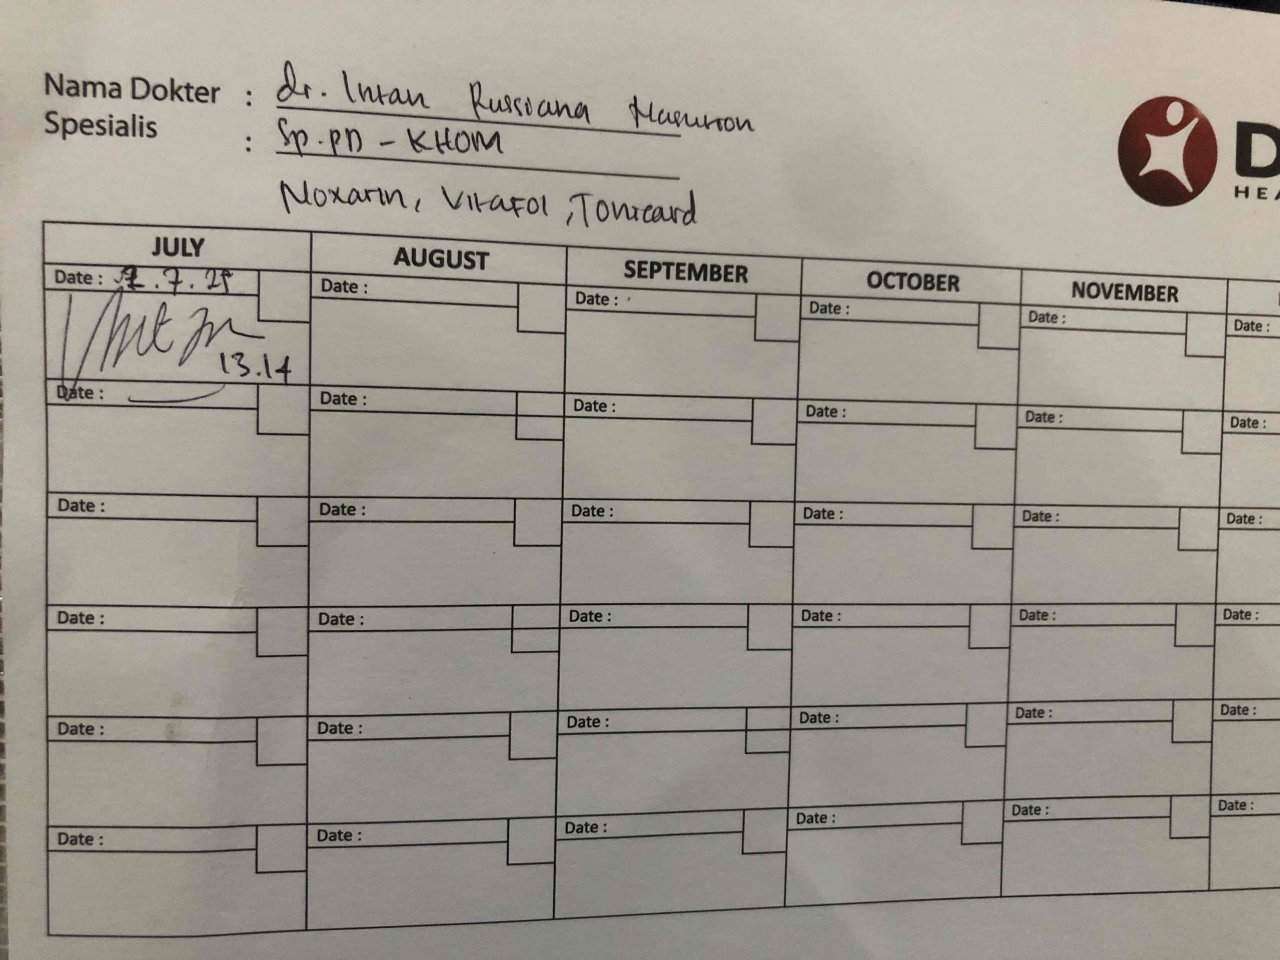 Nama Dokter : dr. Intan Russiana
Spesialis : Sp.PD - KHOM
Noxarin, Vitafol, Tonicard
D
HEA
JULY AUGUST SEPTEMBER OCTOBER NOVEMBER
Date : 7.7.25 Date : Date : Date : Date : Date :
13.14
Date : Date : Date : Date : Date : Date :
Date : Date : Date : Date : Date : Date :
Date : Date : Date : Date : Date : Date :
Date : Date : Date : Date : Date : Date :
Date : Date : Date : Date : Date : Date :